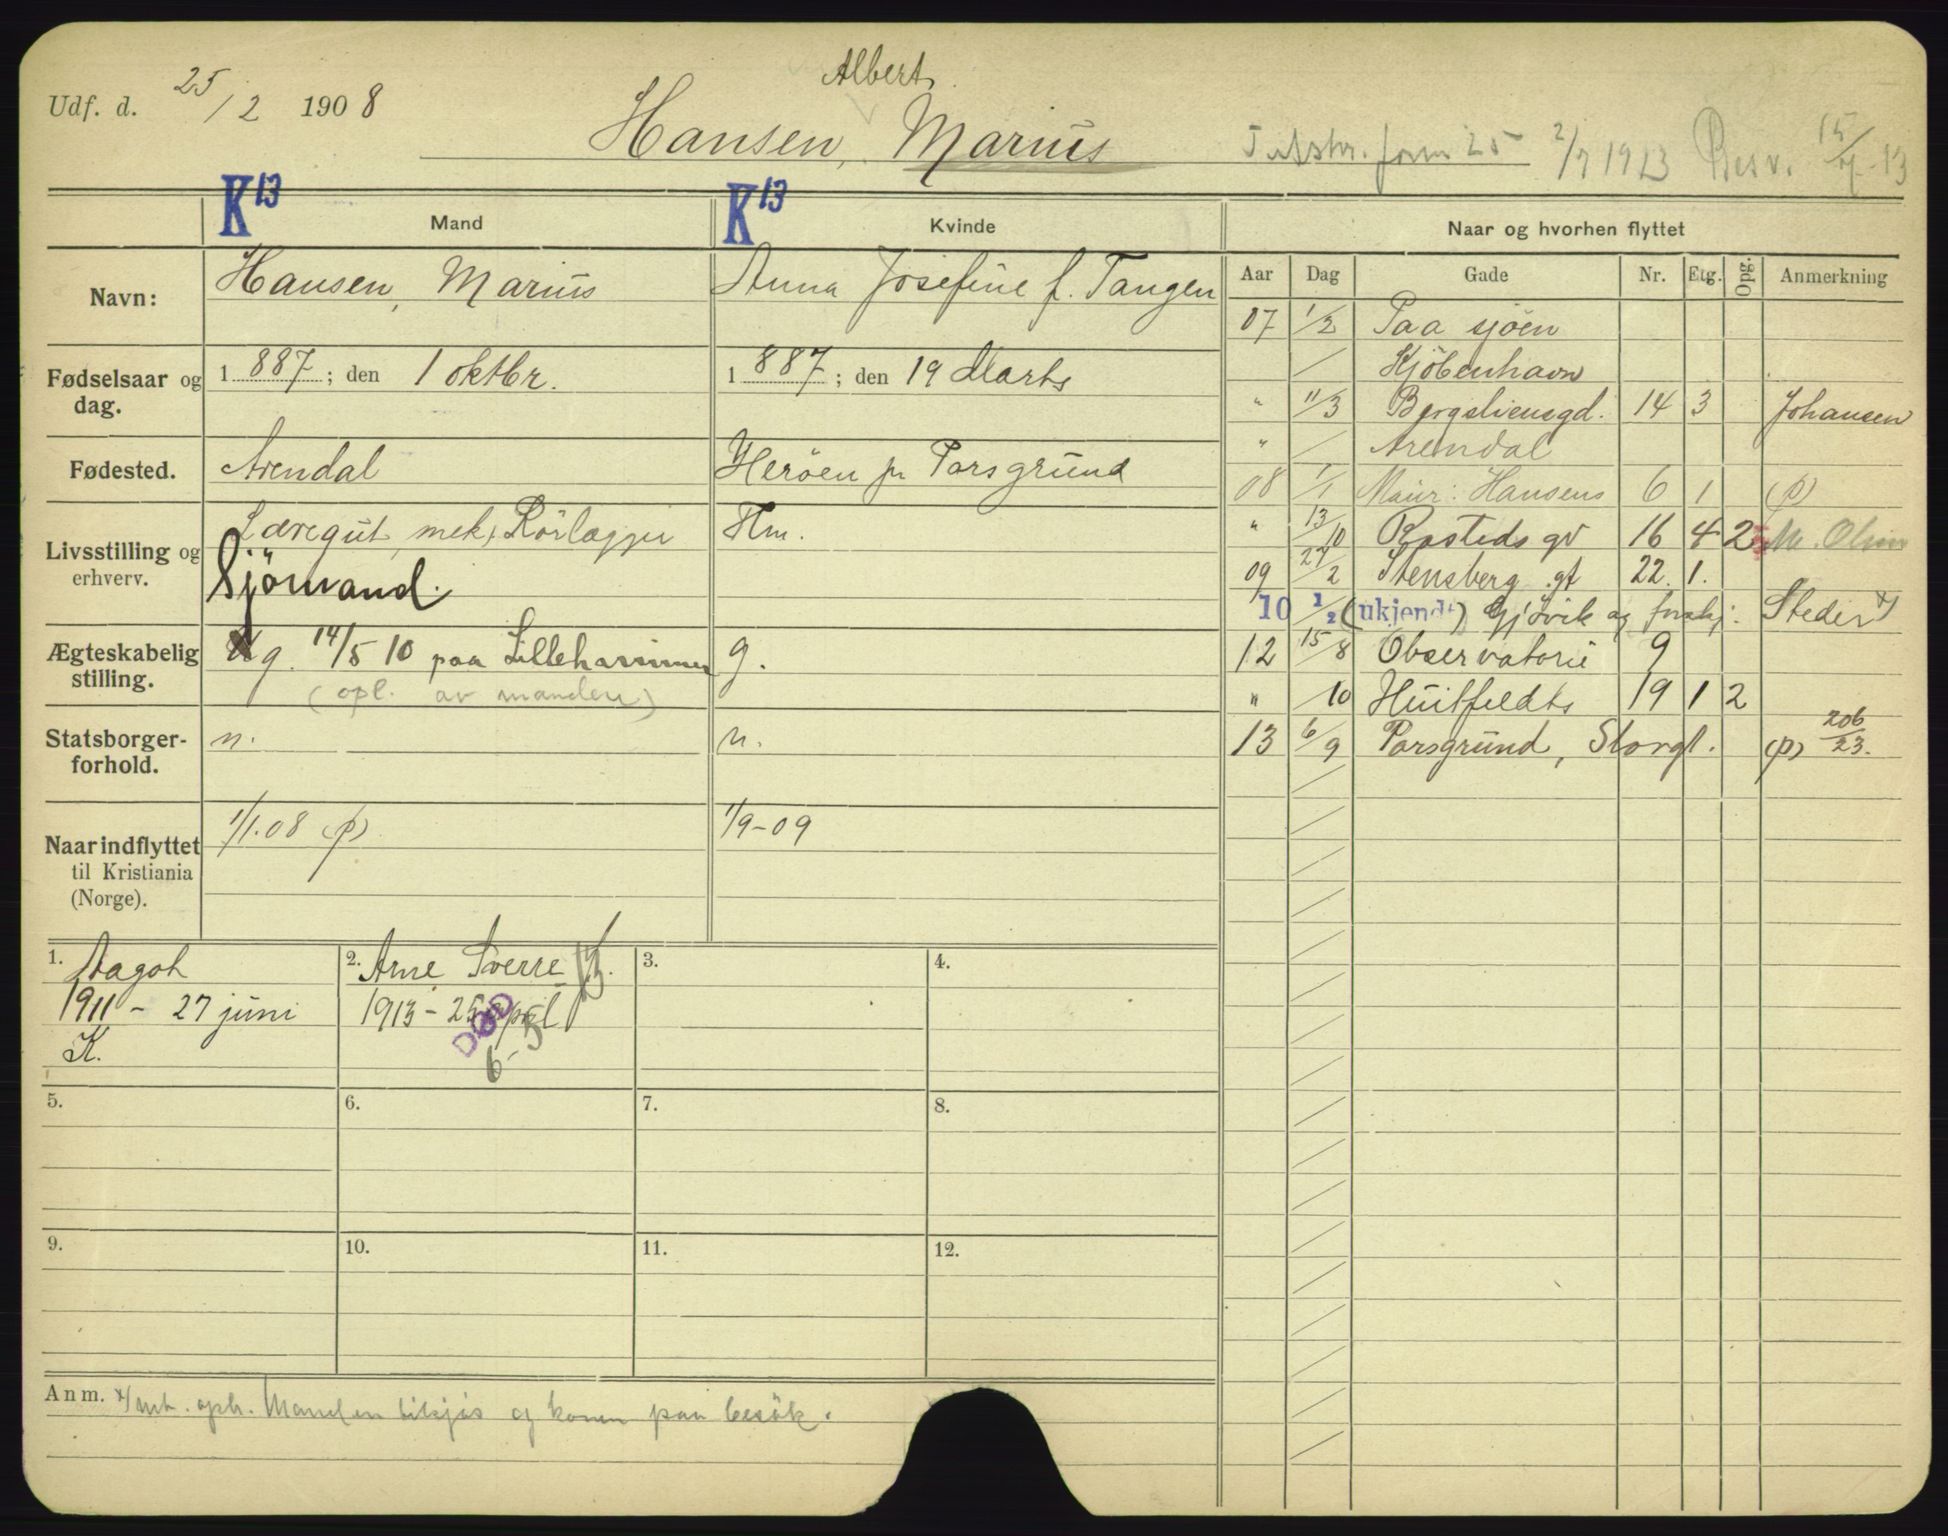 Udf. d. 25/2 1908
Albert
Hansen, Marius
form 25 2/7 1913 Besv. 15/7-13
K13 Mand
K13 Kvinde
Naar og hvorhen flyttet
Navn: Hansen, Marius
Anna Josefine f. Tangen
Fødselsaar og dag. 1887; den 1 oktbr.
1887; den 19 Marts
Fødested. Arendal
Herøen pr Porsgrund
Livsstilling og erhverv. Læregut, mek, Rörlægger
Sjömand.
Hm.
Ægteskabelig stilling. g. 14/5 10 paa Lillehammer
(opl. av manden)
g.
Statsborgerforhold. n.
n.
Naar indflyttet til Kristiania (Norge). 1/1.08 (p)
1/9-09
Aar Dag Gade Nr. Etg. Opg. Anmerkning
07 1/2 Paa sjöen
/ Kjöbenhavn
" 11/3 Bergsliensgd. 14 3 Johansen
" / Arendal
08 1/1 Maur. Hansens 6 1 (p)
" 13/10 Rosteds gv 16 4 2 M. Olsen
09 27/2 Stensberg gt 22. 1.
10 1/2 (ukjendt) Gjövik og forskj. Steder x)
12 15/8 Observatorie 9
" /10 Huitfeldts 19 1 2
13 6/9 Porsgrund, Storgt. (p) 206/23.
1. Aagot
1911 - 27 juni
K.
2. Arne Sverre
1913 - 25 april
DØD
6-5
3.
4.
5.
6.
7.
8.
9.
10.
11.
12.
Anm. x) Manden tilsjøs og konen paa besök.